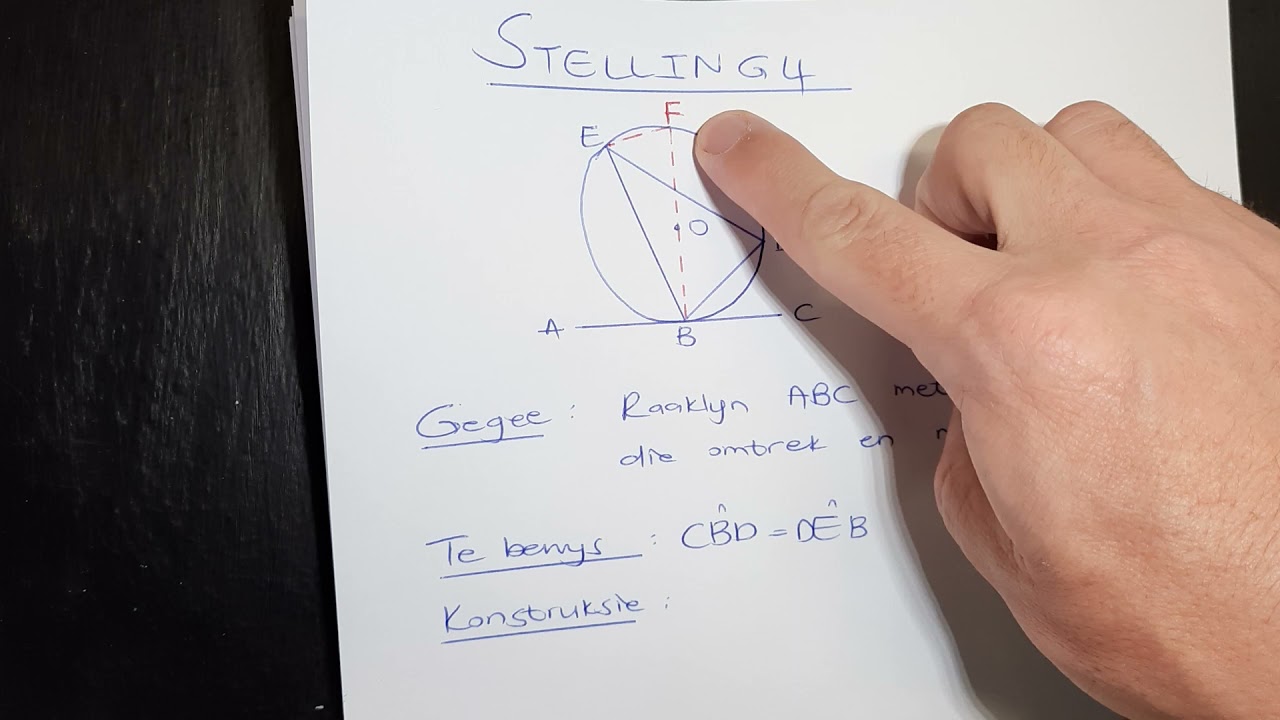 STELLING 4
F
E
O
A
C
B
Gegee : Raaklyn ABC met
die omtrek en
Te bewys : CB̂D = DÊB
Konstruksie :